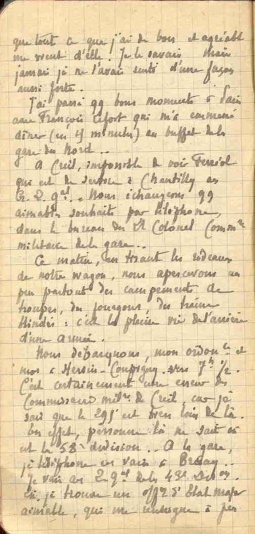 que tout ce que j'ai de bon et agréable
me vient d'elle. Je le savais mais
jamais je ne l'avais senti d'une façon
aussi forte.
J'ai passé qq bons moments à Paris
avec François qui m'a emmené
dîner (en minutes) au buffet de la
gare du Nord..
A Creil, impossible de voir
qui est de service à Chantilly au
G. Q. Gal.. Nous échangeons qq
aimables souhaits par téléphone,
dans le bureau du Lt Colonel Comm.
militaire de la gare..
Ce matin, en tirant les rideaux
de notre wagon, nous apercevons un
peu partout des campements de
troupes, des fourgons, des trains
blindés : c'est la pleine vie de l'arrière
d'une armée.
Nous débarquons, mon ordonce et
moi à Hersin-Coupigny vers 7h 1/2.
C'est certainement une erreur du
Commissaire milre de Creil, car je
sais que le 295e est bien loin de là.
En effet, personne là ne sait où
est la 58e division.. A la gare,
je téléphone en vain à Bruay..
Je vais au Q. Gal de la 43e Don
Là, je trouve un offr d'Etat Major
aimable, qui me renseigne à peu